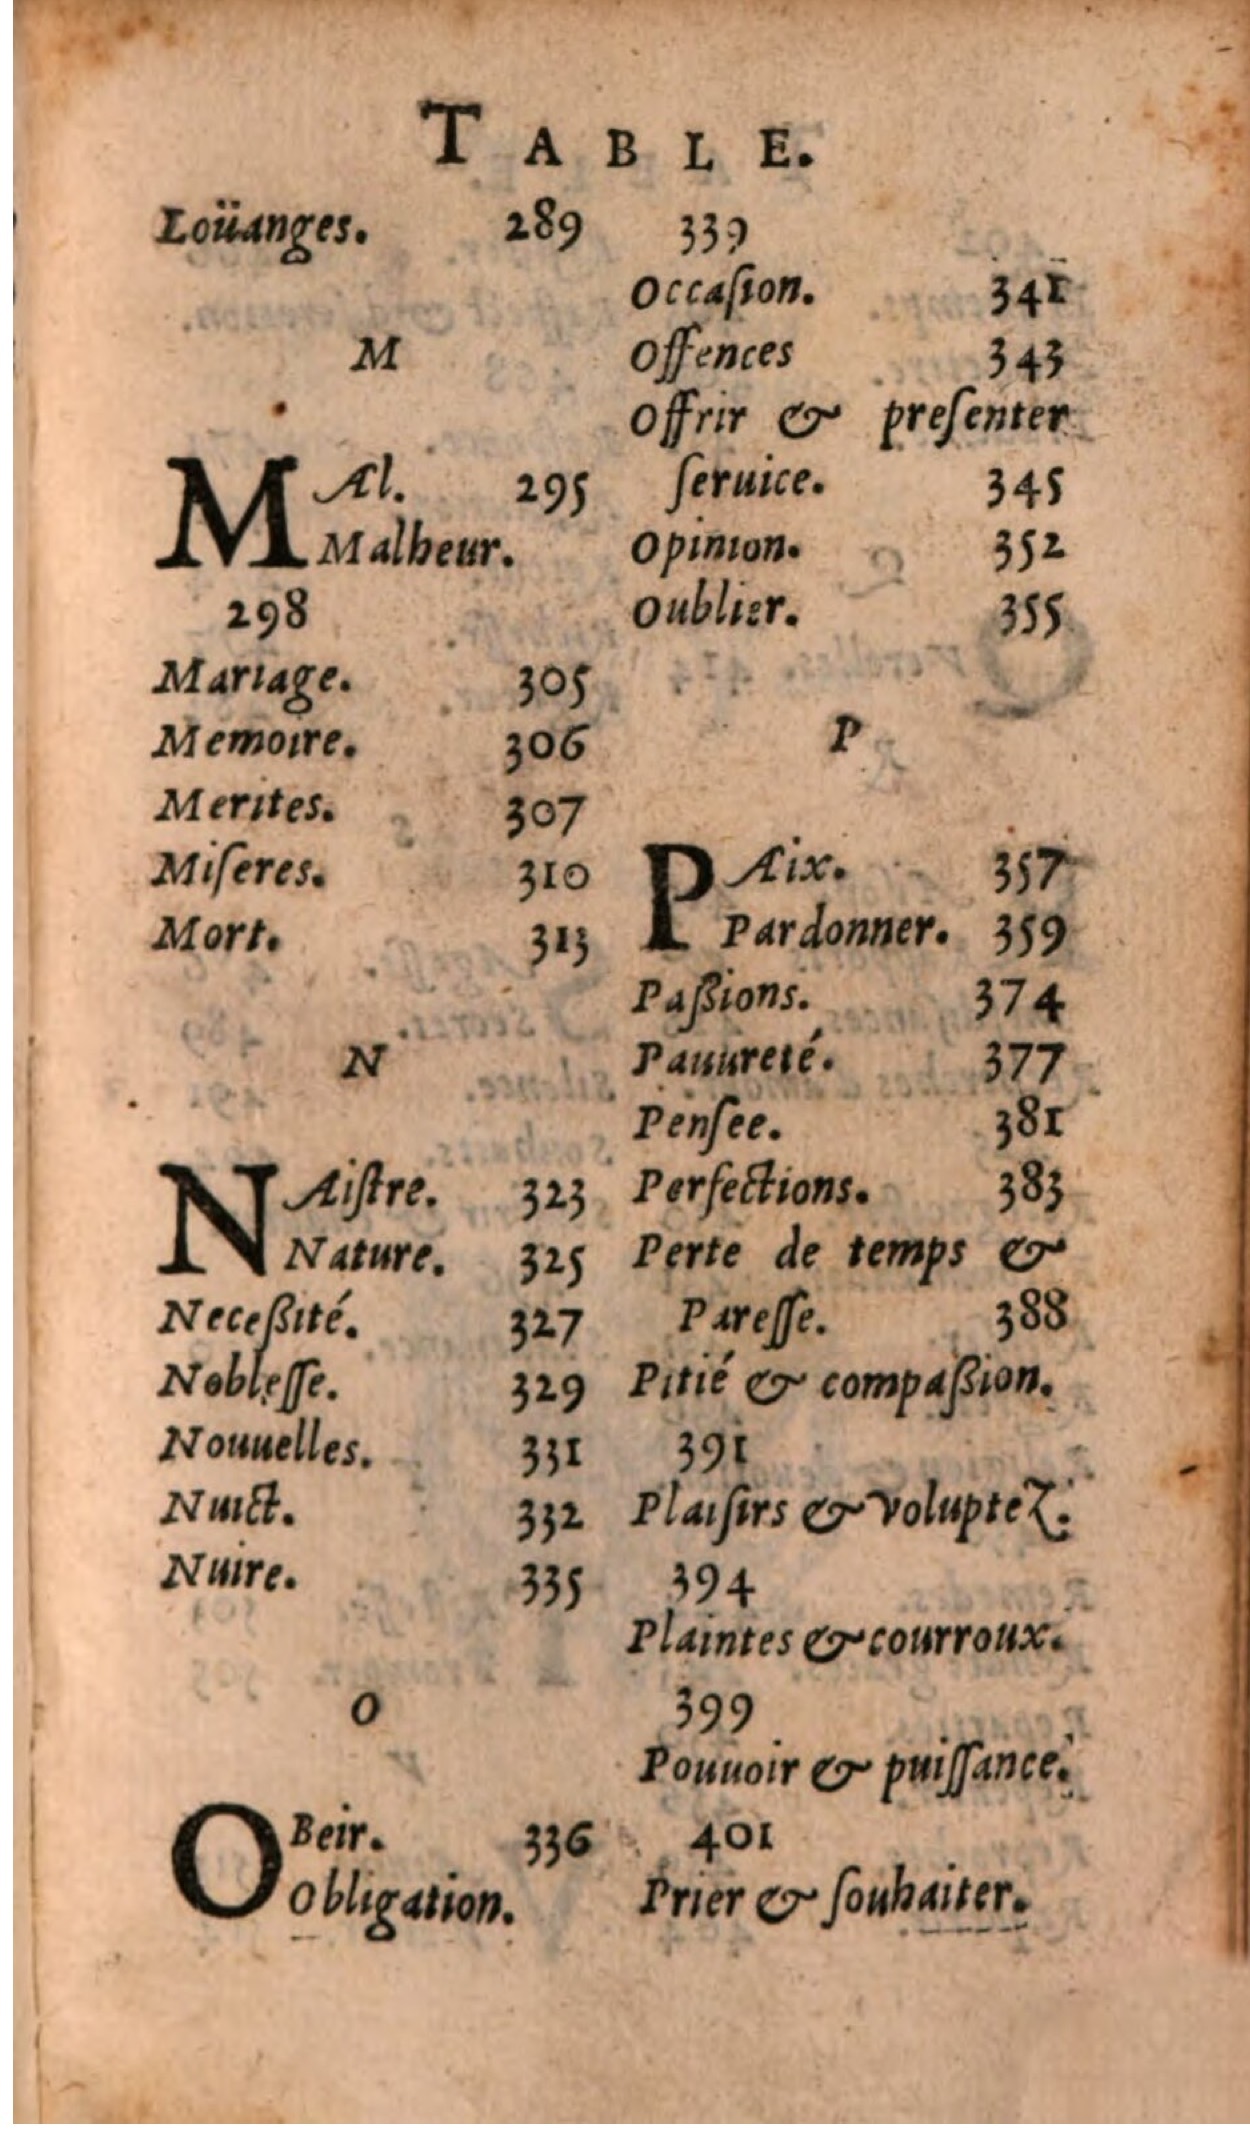 TABLE.
Loüanges. 289
M
MAl. 295
Malheur.
298
Mariage. 305
Memoire. 306
Merites. 307
Miſeres. 310
Mort. 313
N
NAiſtre. 323
Nature. 325
Neceßité. 327
Nobleſſe. 329
Nouuelles. 331
Nuict. 332
Nuire. 335
O
OBeir. 336
Obligation.
339
Occaſion. 341
Offences 343
Offrir & preſenter
ſeruice. 345
Opinion. 352
Oublier. 355
P
PAix. 357
Pardonner. 359
Paßions. 374
Pauureté. 377
Penſee. 381
Perfections. 383
Perte de temps &
Pareſſe. 388
Pitié & compaßion.
391
Plaiſirs & voluptez.
394
Plaintes & courroux.
399
Pouuoir & puiſſance.
401
Prier & ſouhaiter.